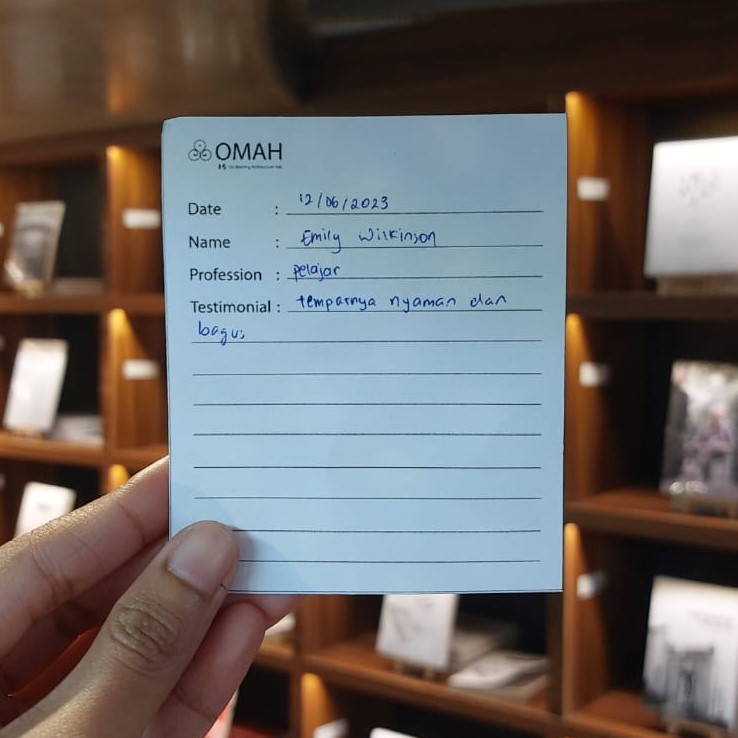 OMAH
Date : 12/06/2023
Name : Emily Wilkinson
Profession : pelajar
Testimonial : tempatnya nyaman dan
bagus